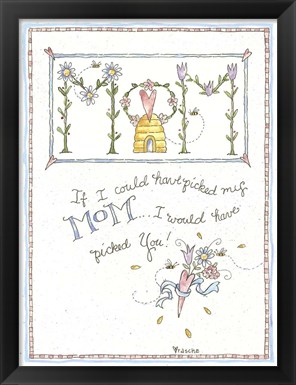 MOM
If I could have picked my
MOM...I would have
picked You!